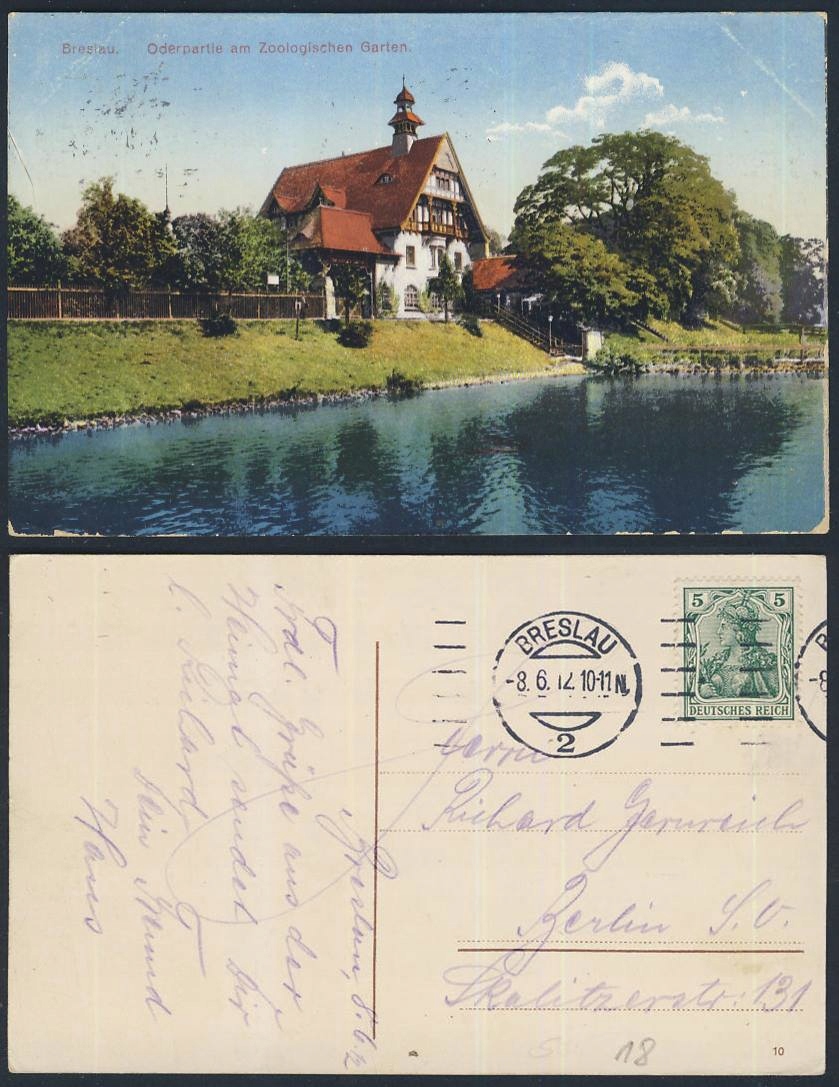 Breslau. Oderpartie am Zoologischen Garten.
Breslau, 8.6.12
Frdl. Grüße aus der
Heimat sendet Dir
l. Richard
Dein Freund
Hans
BRESLAU
-8.6.12.10-11N.
2
5 5
DEUTSCHES REICH
Herrn
Richard
Berlin S.O.
Skalitzerstr. 131
18
10